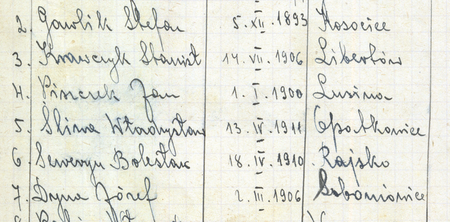 2. Gawlik Stefan 5.XII.1893 Kosocice
3. Krawczyk Stanisł 14.VII.1906 Libertów
4. Pinczek Jan 1.I.1900 Lusina
5. Śliwa Władysław 13.IV.1911 Opatkowice
6. Seweryn Bolesław 18.IV.1910 Rajsko
7. Dyna Józef 2.III.1906